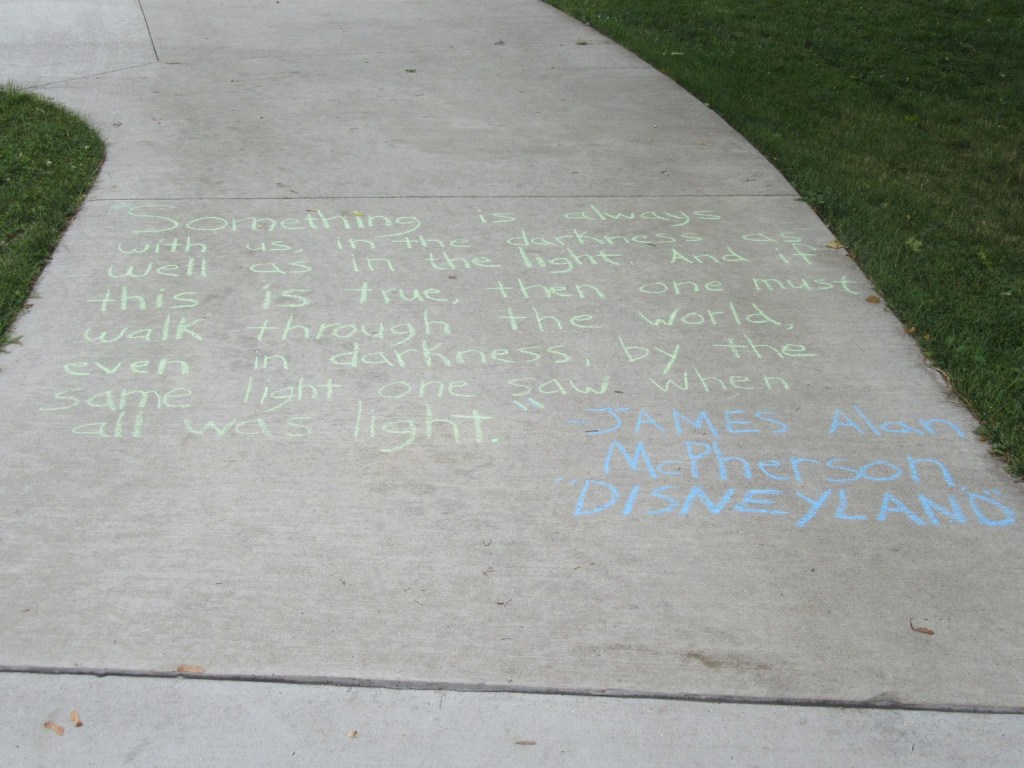 "Something is always
with us, in the darkness as
well as in the light. And if
this is true, then one must
walk through the world,
even in darkness, by the
same light one saw when
all was light."
-JAMES Alan
McPherson,
"DISNEYLAND"